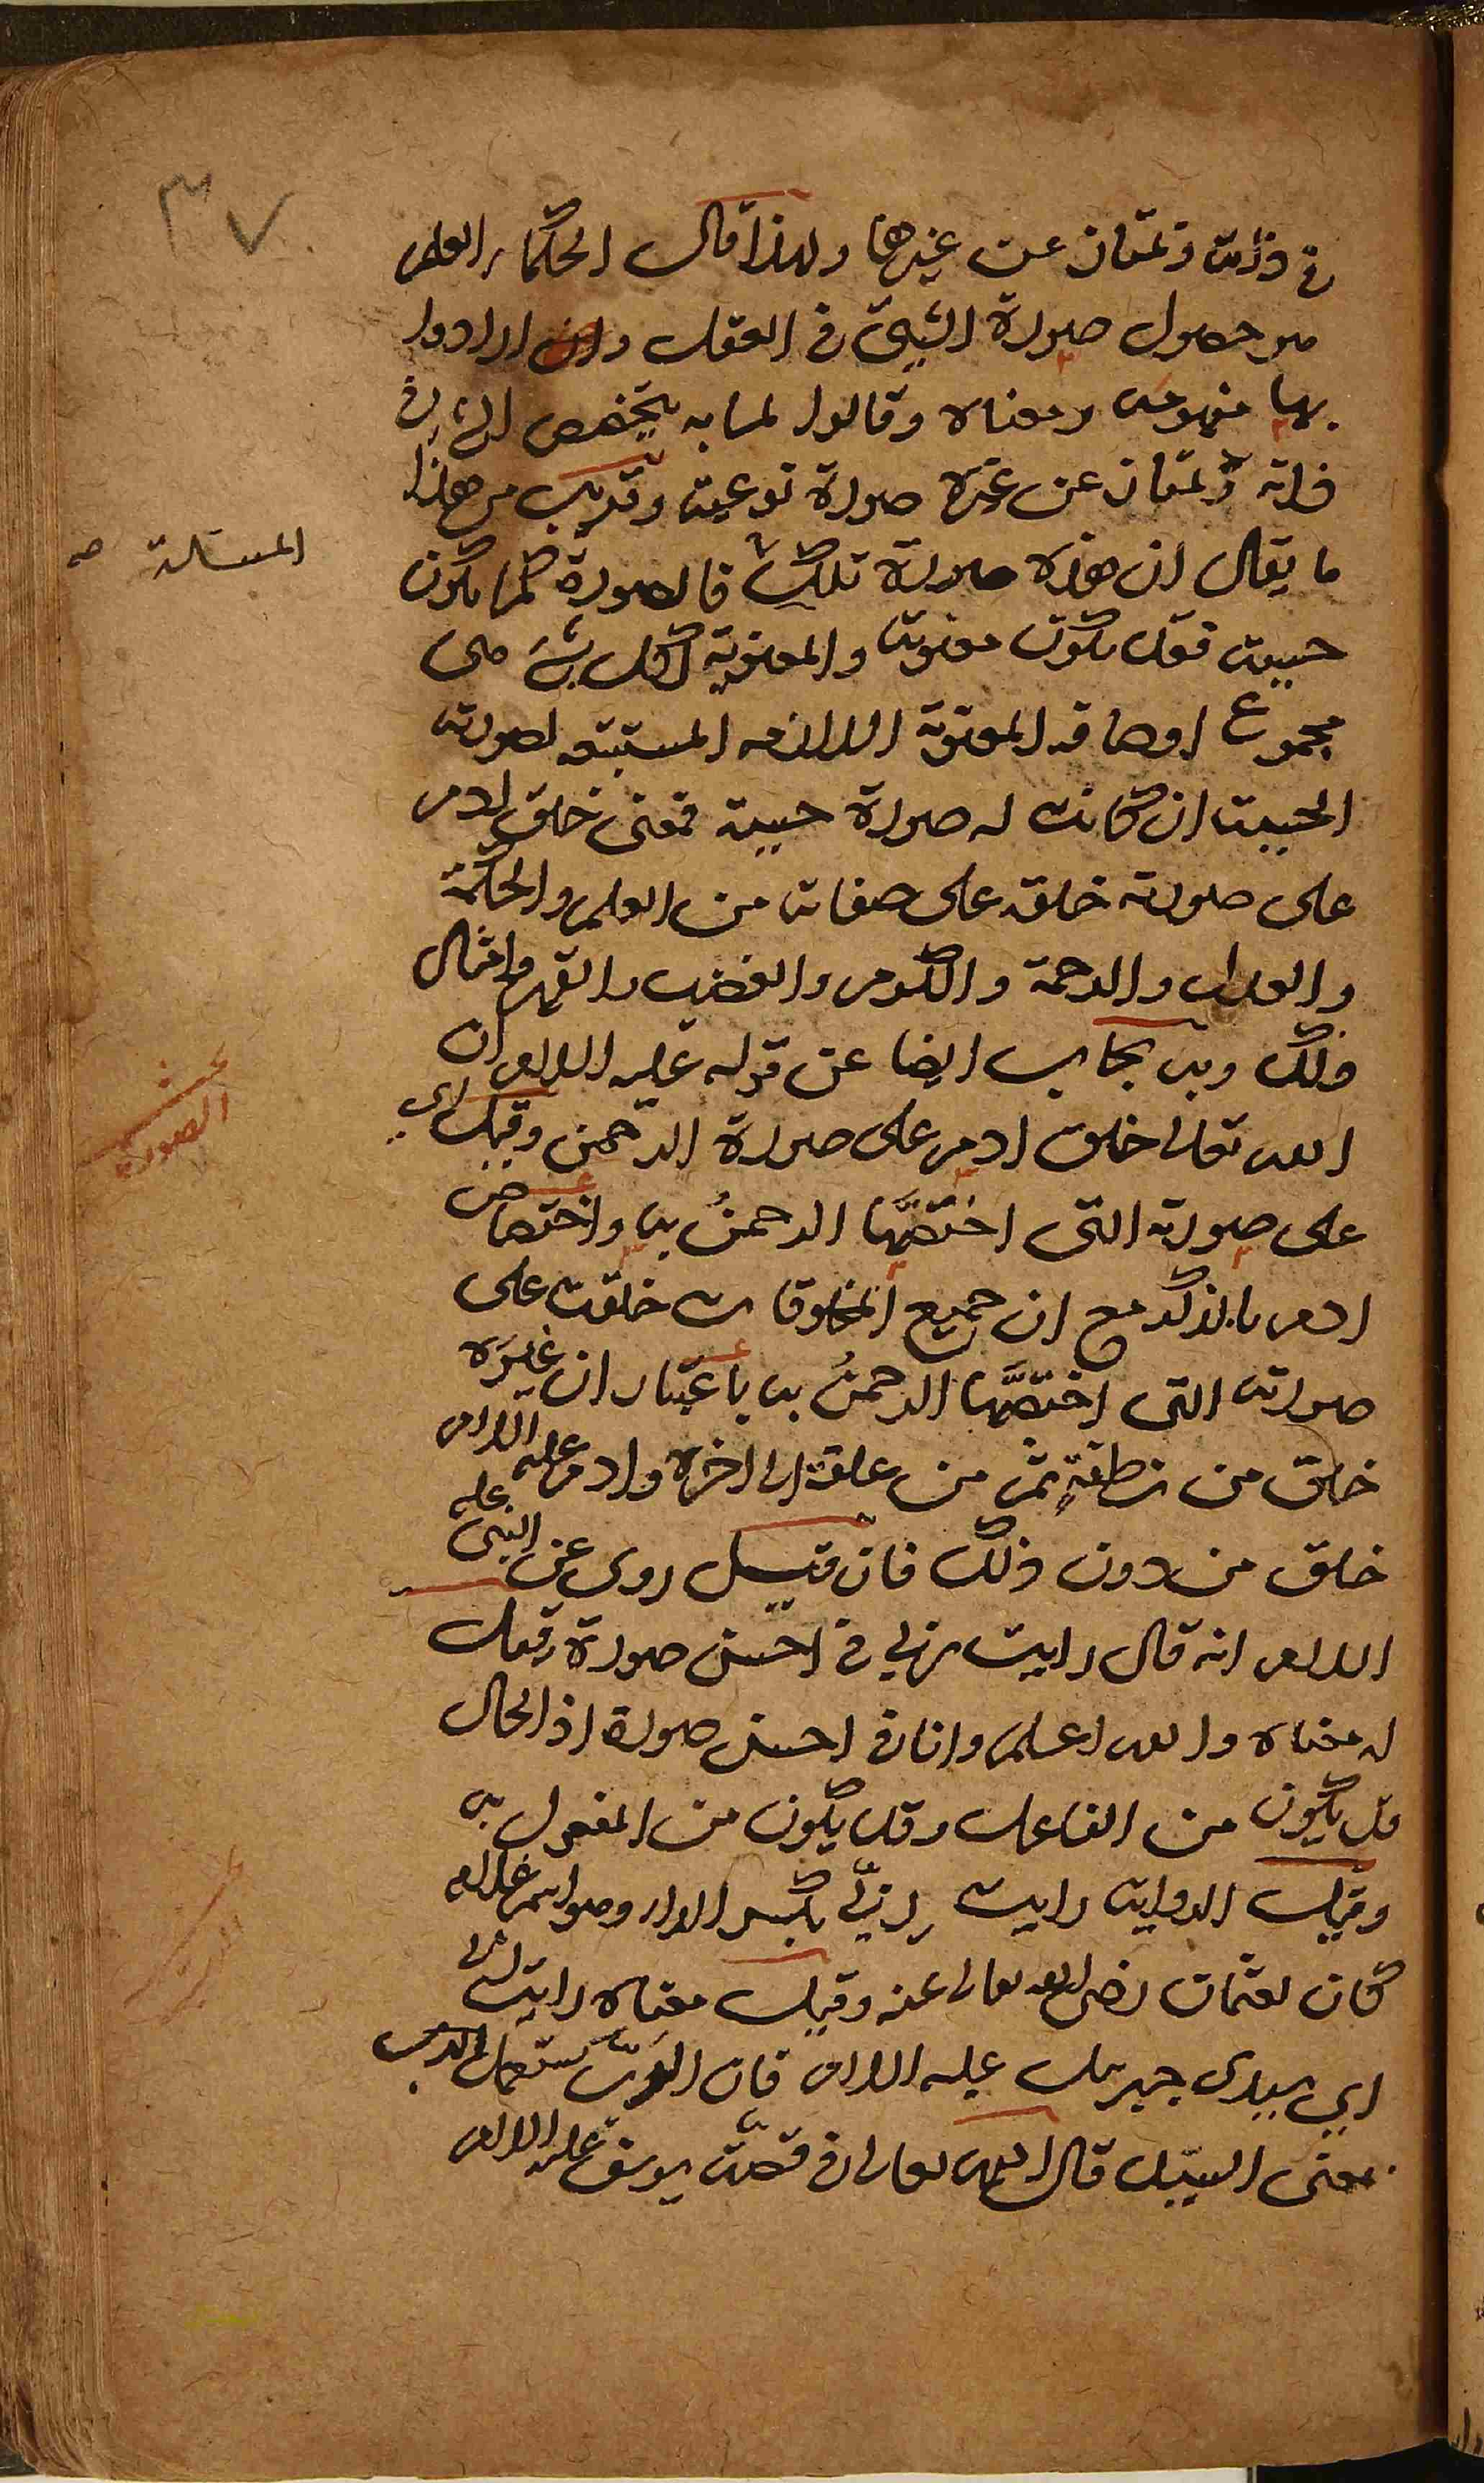 ٣٧
في ذاته وتمتاز عن غيرها ولهذا قال الحكماء العلم
هو حصول صورة الشيئ في العقل وان ارادوا
بها مفهومه ومعناه وقالوا لما به يتخصص الشئ في
ذاته وتمتاز عن غيره صورة نوعية وقريب من هذا
ما يقال ان هذه صورة تلك فالصورة كما يكون
المسئلة صه
حسية فقد يكون معنوية والمعنوية لكل شئ هي
مجموع اوصافه المعنوية اللازمه المستتبعه لصورته
الحسية ان كانت له صورة حسية فمعنى خلق ادم
على صورته خلقه على صفاته من العلم والحكمة
والعدل والرحمة والكرم والغضب والقهر وامثال
ذلك وبه يجاب ايضا عن قوله عليه السلام ان
بحث
الصورة
الله تعالى خلق ادم على صورة الرحمن وقيل اي
على صورته التى اختصّها الرحمنُ به واختصاص
ادم بالذكر مع ان جميع المخلوقات خلقت على
صورته التى اختصّها الرحمنُ به باعتبار ان غيرَه
خلق من نطفةٍ ثم من علقة الى اخره وادم عليه السلام
خلق من دون ذلك فان قيل روى عن النبى عليه
السلام انه قال رايت ربي في احسن صورة فقل
له معناه والله اعلم وانا في احسن صورة اذ الحال
قد يكون من الفاعل وقد يكون من المفعول به
وقيل الرواية رايت رِبّي بكسر الراء وهو اسم غلام
كان لعثمان رضى الله تعالى عنه وقيل معناه رايت ربي
اي سيدى جبريل عليه السلام فان الربّ يستعمل
بمعنى السيّد قال الله تعالى في قصّة يوسف عليه السلام